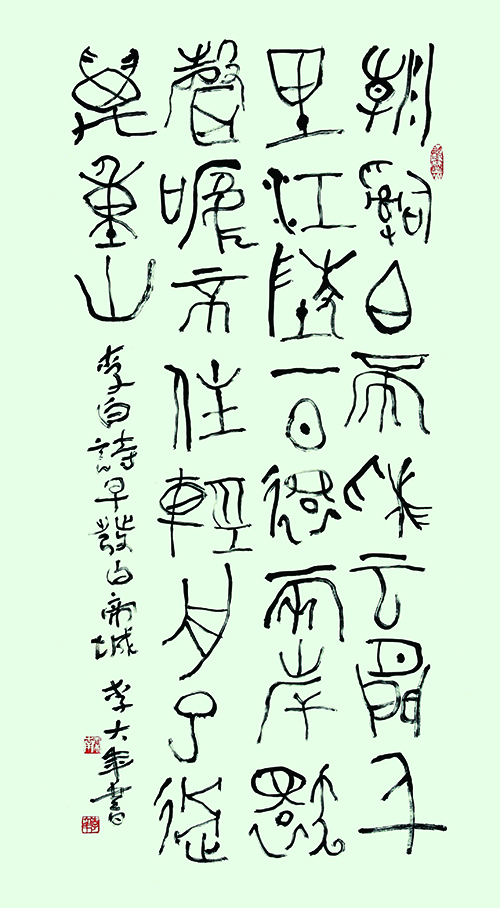 朝辭白帝采云間千
里江陵一日還兩岸猿
聲啼不住輕舟已過
萬重山
李白詩早發白帝城 李大年書